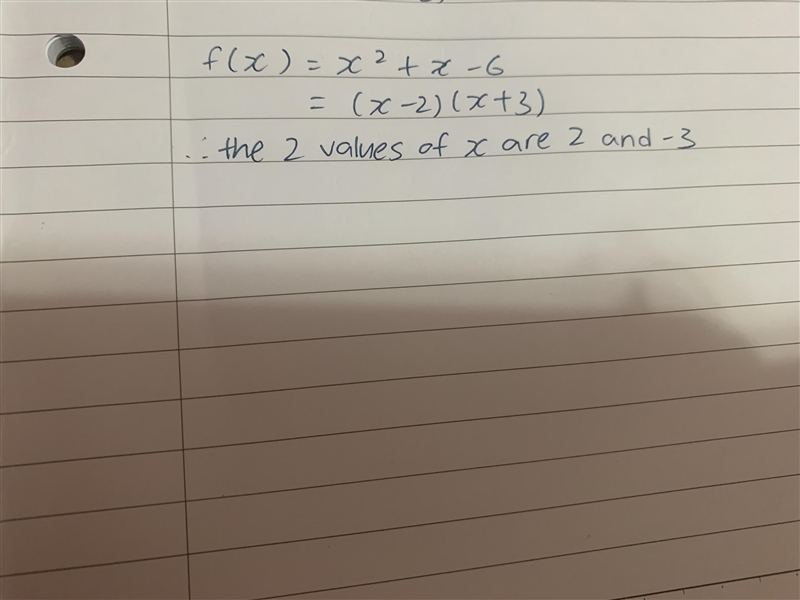 f(x) = x² + x - 6
= (x-2)(x+3)
∴ the 2 values of x are 2 and -3